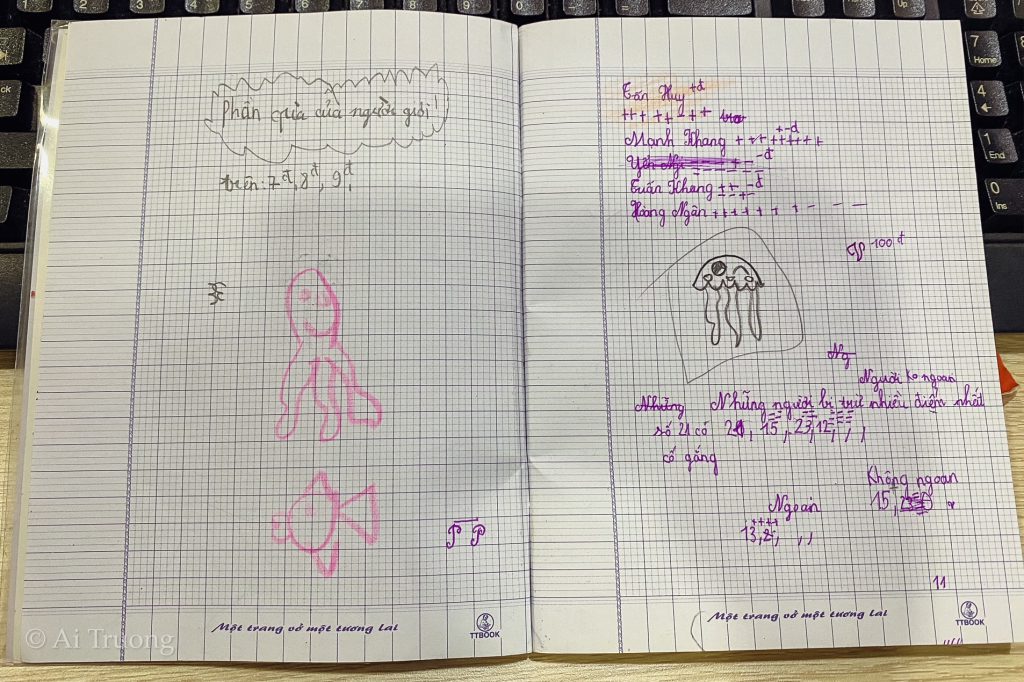 Phần quà của người giỏi!
trên: 7đ, 8đ, 9đ,
P P
Một trang vở một tương lai
TTBOOK
© Ai Truong
Tấn Huy +đ
++ ++ - ++
Mạnh Khang + + ++ +++++ +-đ
Yến -đ
Tuấn Khang ++ -đ
Hoàng Ngân +++ + + + + - - -
100đ
Ng
Người ko ngoan
Những Những người bị trừ nhiều điểm nhất
số 21 có 21, 15, 23, 12, , ,
cố gắng
Không ngoan
15,
Ngoan
++++
13, 21, , ,
11
Một trang vở một tương lai
TTBOOK
7
Home
4
1
End
0
Ins
Up